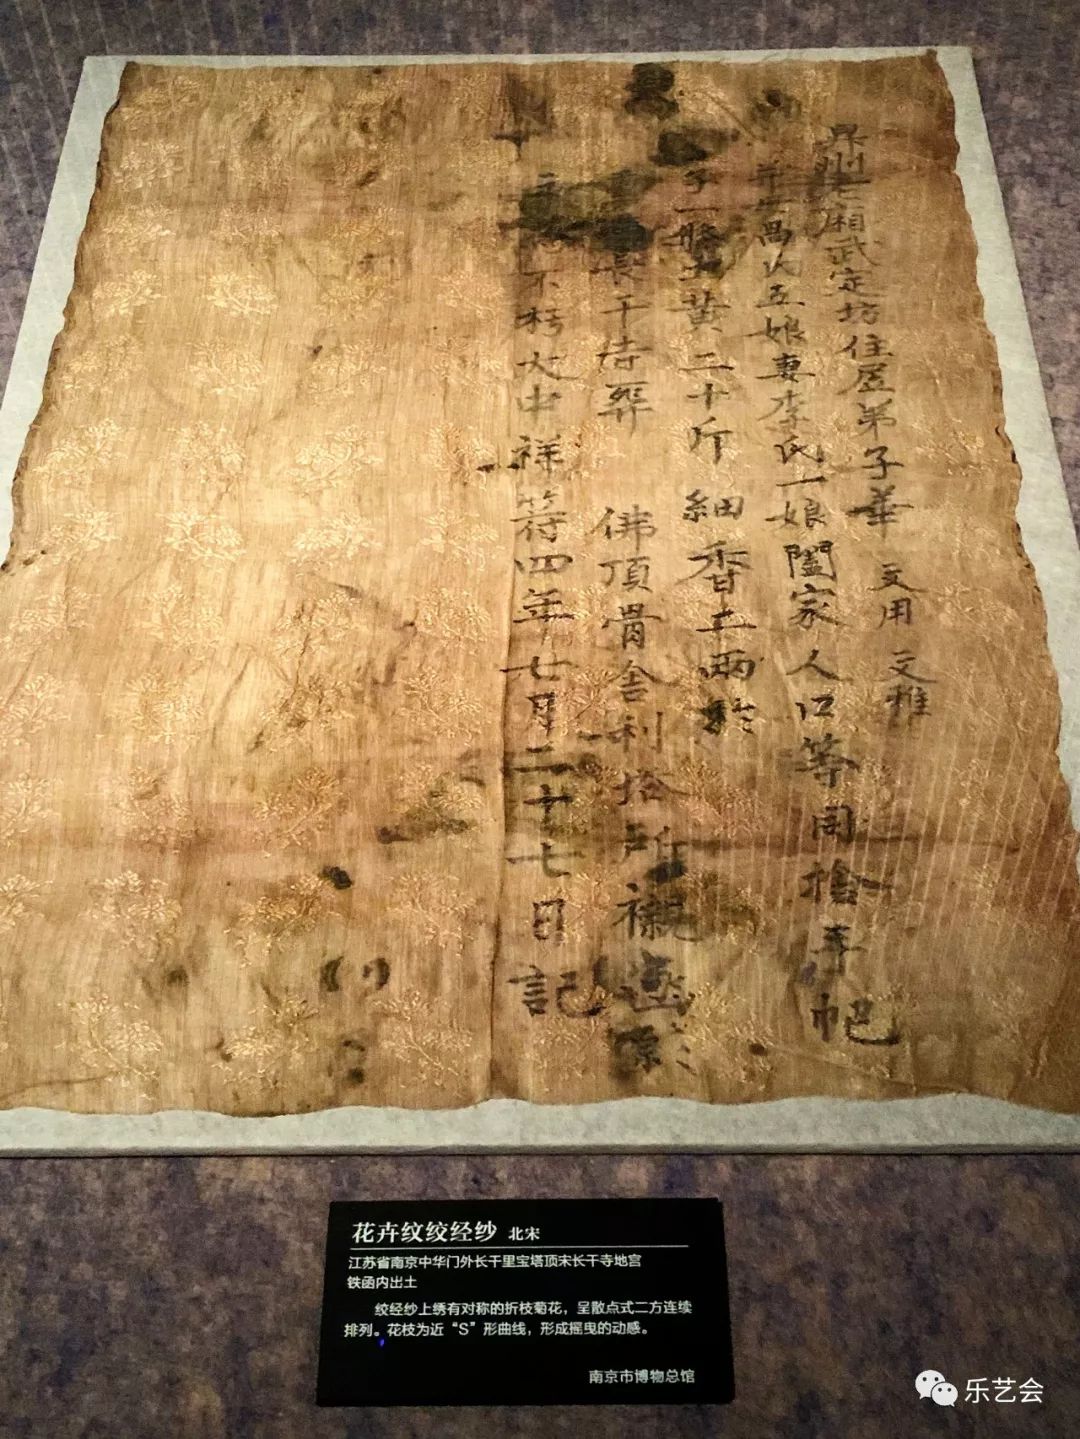 昇州 廂武定坊住屋弟子華 文用 文雅
五娘妻李氏一娘闔家人口等同捨手帊
子一條 黃二十斤 細香 兩於
長干寺葬 佛頂骨舍利塔所襯函
不朽大中祥符四年七月二十七日記
花卉纹绞经纱 北宋
江苏省南京中华门外长干里宝塔顶宋长干寺地宫
铁函内出土
绞经纱上绣有对称的折枝菊花，呈散点式二方连续
排列。花枝为近“S”形曲线，形成摇曳的动感。
南京市博物总馆
乐艺会